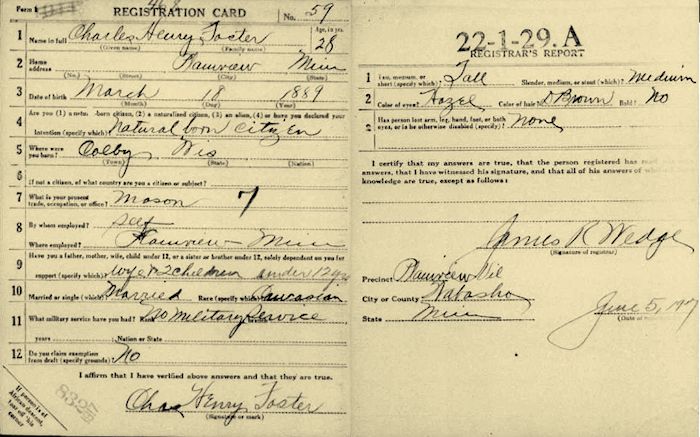 Form 1
REGISTRATION CARD No. 59
1 Name in full Charles Henry Foster Age, in yrs. 28
(Given name) (Family name)
2 Home address Plainview Minn
(No.) (Street) (City) (State)
3 Date of birth March 18 1889
(Month) (Day) (Year)
4 Are you (1) a natural-born citizen, (2) a naturalized citizen, (3) an alien, (4) or have you declared your
intention (specify which)? Natural born Citizen
5 Where were you born? Colby Wis
(Town) (State) (Nation)
6 If not a citizen, of what country are you a citizen or subject?
7 What is your present trade, occupation, or office? Mason 7
8 By whom employed? Self
Where employed? Plainview - Minn
9 Have you a father, mother, wife, child under 12, or a sister or brother under 12, solely dependent on you for
support (specify which)? wife & 2 children under 12 yrs
10 Married or single (which)? Married Race (specify which)? Caucasian
11 What military service have you had? Rank No Military Service
years Nation or State
12 Do you claim exemption from draft (specify grounds)? No
I affirm that I have verified above answers and that they are true.
Chas Henry Foster
(Signature or mark)
If person is of African descent, tear off this corner
8325
22-1-29. A
REGISTRAR'S REPORT
1 Tall, medium, or short (specify which)? Tall Slender, medium, or stout (which)? Medium
2 Color of eyes? Hazel Color of hair? D Brown Bald? No
3 Has person lost arm, leg, hand, foot, or both eyes, or is he otherwise disabled (specify)? None
I certify that my answers are true, that the person registered has read
answers, that I have witnessed his signature, and that all of his answers of
knowledge are true, except as follows:
James R Wedge
(Signature of registrar)
Precinct Plainview Vil
City or County Wabasha
State Minn
June 5, 1917